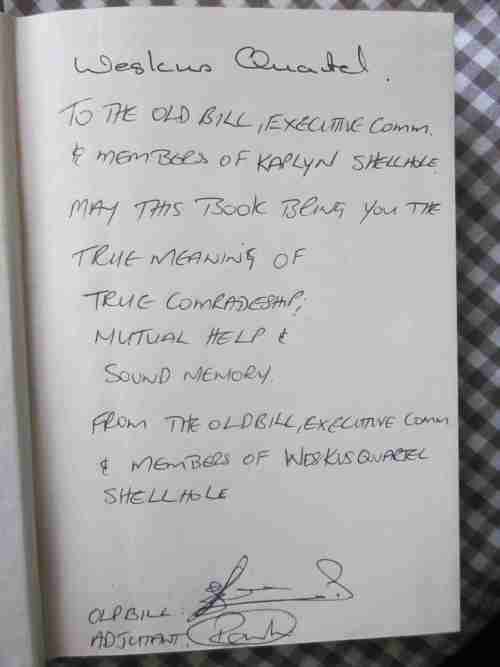 Weskus Quartel.
TO THE OLD BILL, EXECUTIVE COMM.
& MEMBERS OF KAPLYN SHELLHOLE.
MAY THIS BOOK BRING YOU THE
TRUE MEANING OF
TRUE COMRADESHIP;
MUTUAL HELP &
SOUND MEMORY.
FROM THE OLDBILL, EXECUTIVE COMM
& MEMBERS OF WESKUSQUARTEL
SHELLHOLE
OLDBILL:
ADJUTANT: